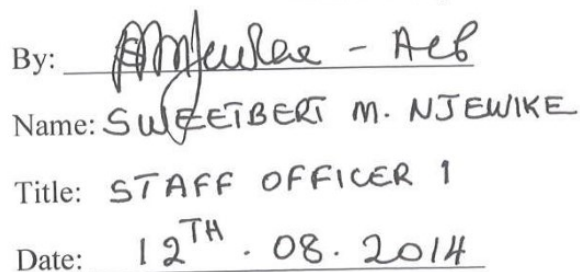 By: - ACP
Name: SWEETBERT M. NJEWIKE
Title: STAFF OFFICER 1
Date: 12TH . 08 . 2014